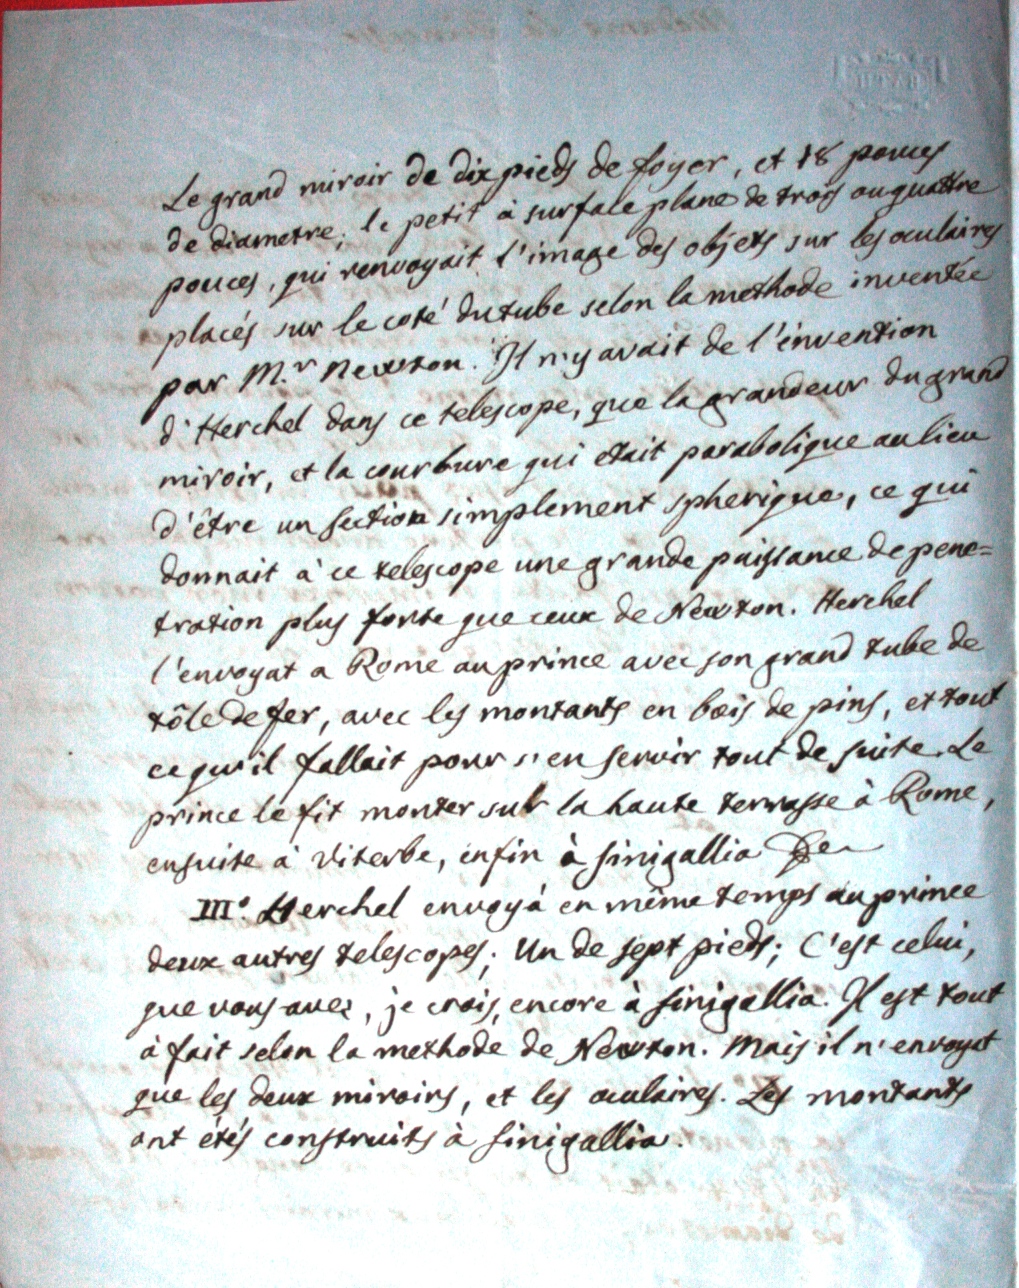 Le grand miroir de dix pieds de foyer, et 18 pouces
de diametre; le petit à surface plane de trois ou quattre
pouces, qui renvoyait l'image des objets sur les oculaires
placés sur le coté du tube selon la methode inventée
par M.r Newton. Il n'y avait de l'invention
d'Herchel dans ce telescope, que la grandeur du grand
miroir, et la courbure qui etait parabolique au lieu
d'être un section simplement spherique, ce qui
donnait à ce telescope une grande puissance de pene=
tration plus forte que ceux de Newton. Herchel
l'envoyat a Rome au prince avec son grand tube de
tôle de fer, avec les montants en bois de pins, et tout
ce qu'il fallait pour s'en servir tout de suite. Le
prince le fit monter sur la haute terrasse à Rome,
ensuite à Viterbe, enfin à Sinigallia
III.° Herchel envoyá en même temps au prince
deux autres telescopes; Un de sept pieds; C'est celui,
que vous avez, je crois, encore à Sinigallia. Il est tout
à fait selon la methode de Newton. Mais il n'envoyat
que les deux miroirs, et les oculaires. Les montants
ont étés construits à Sinigallia.